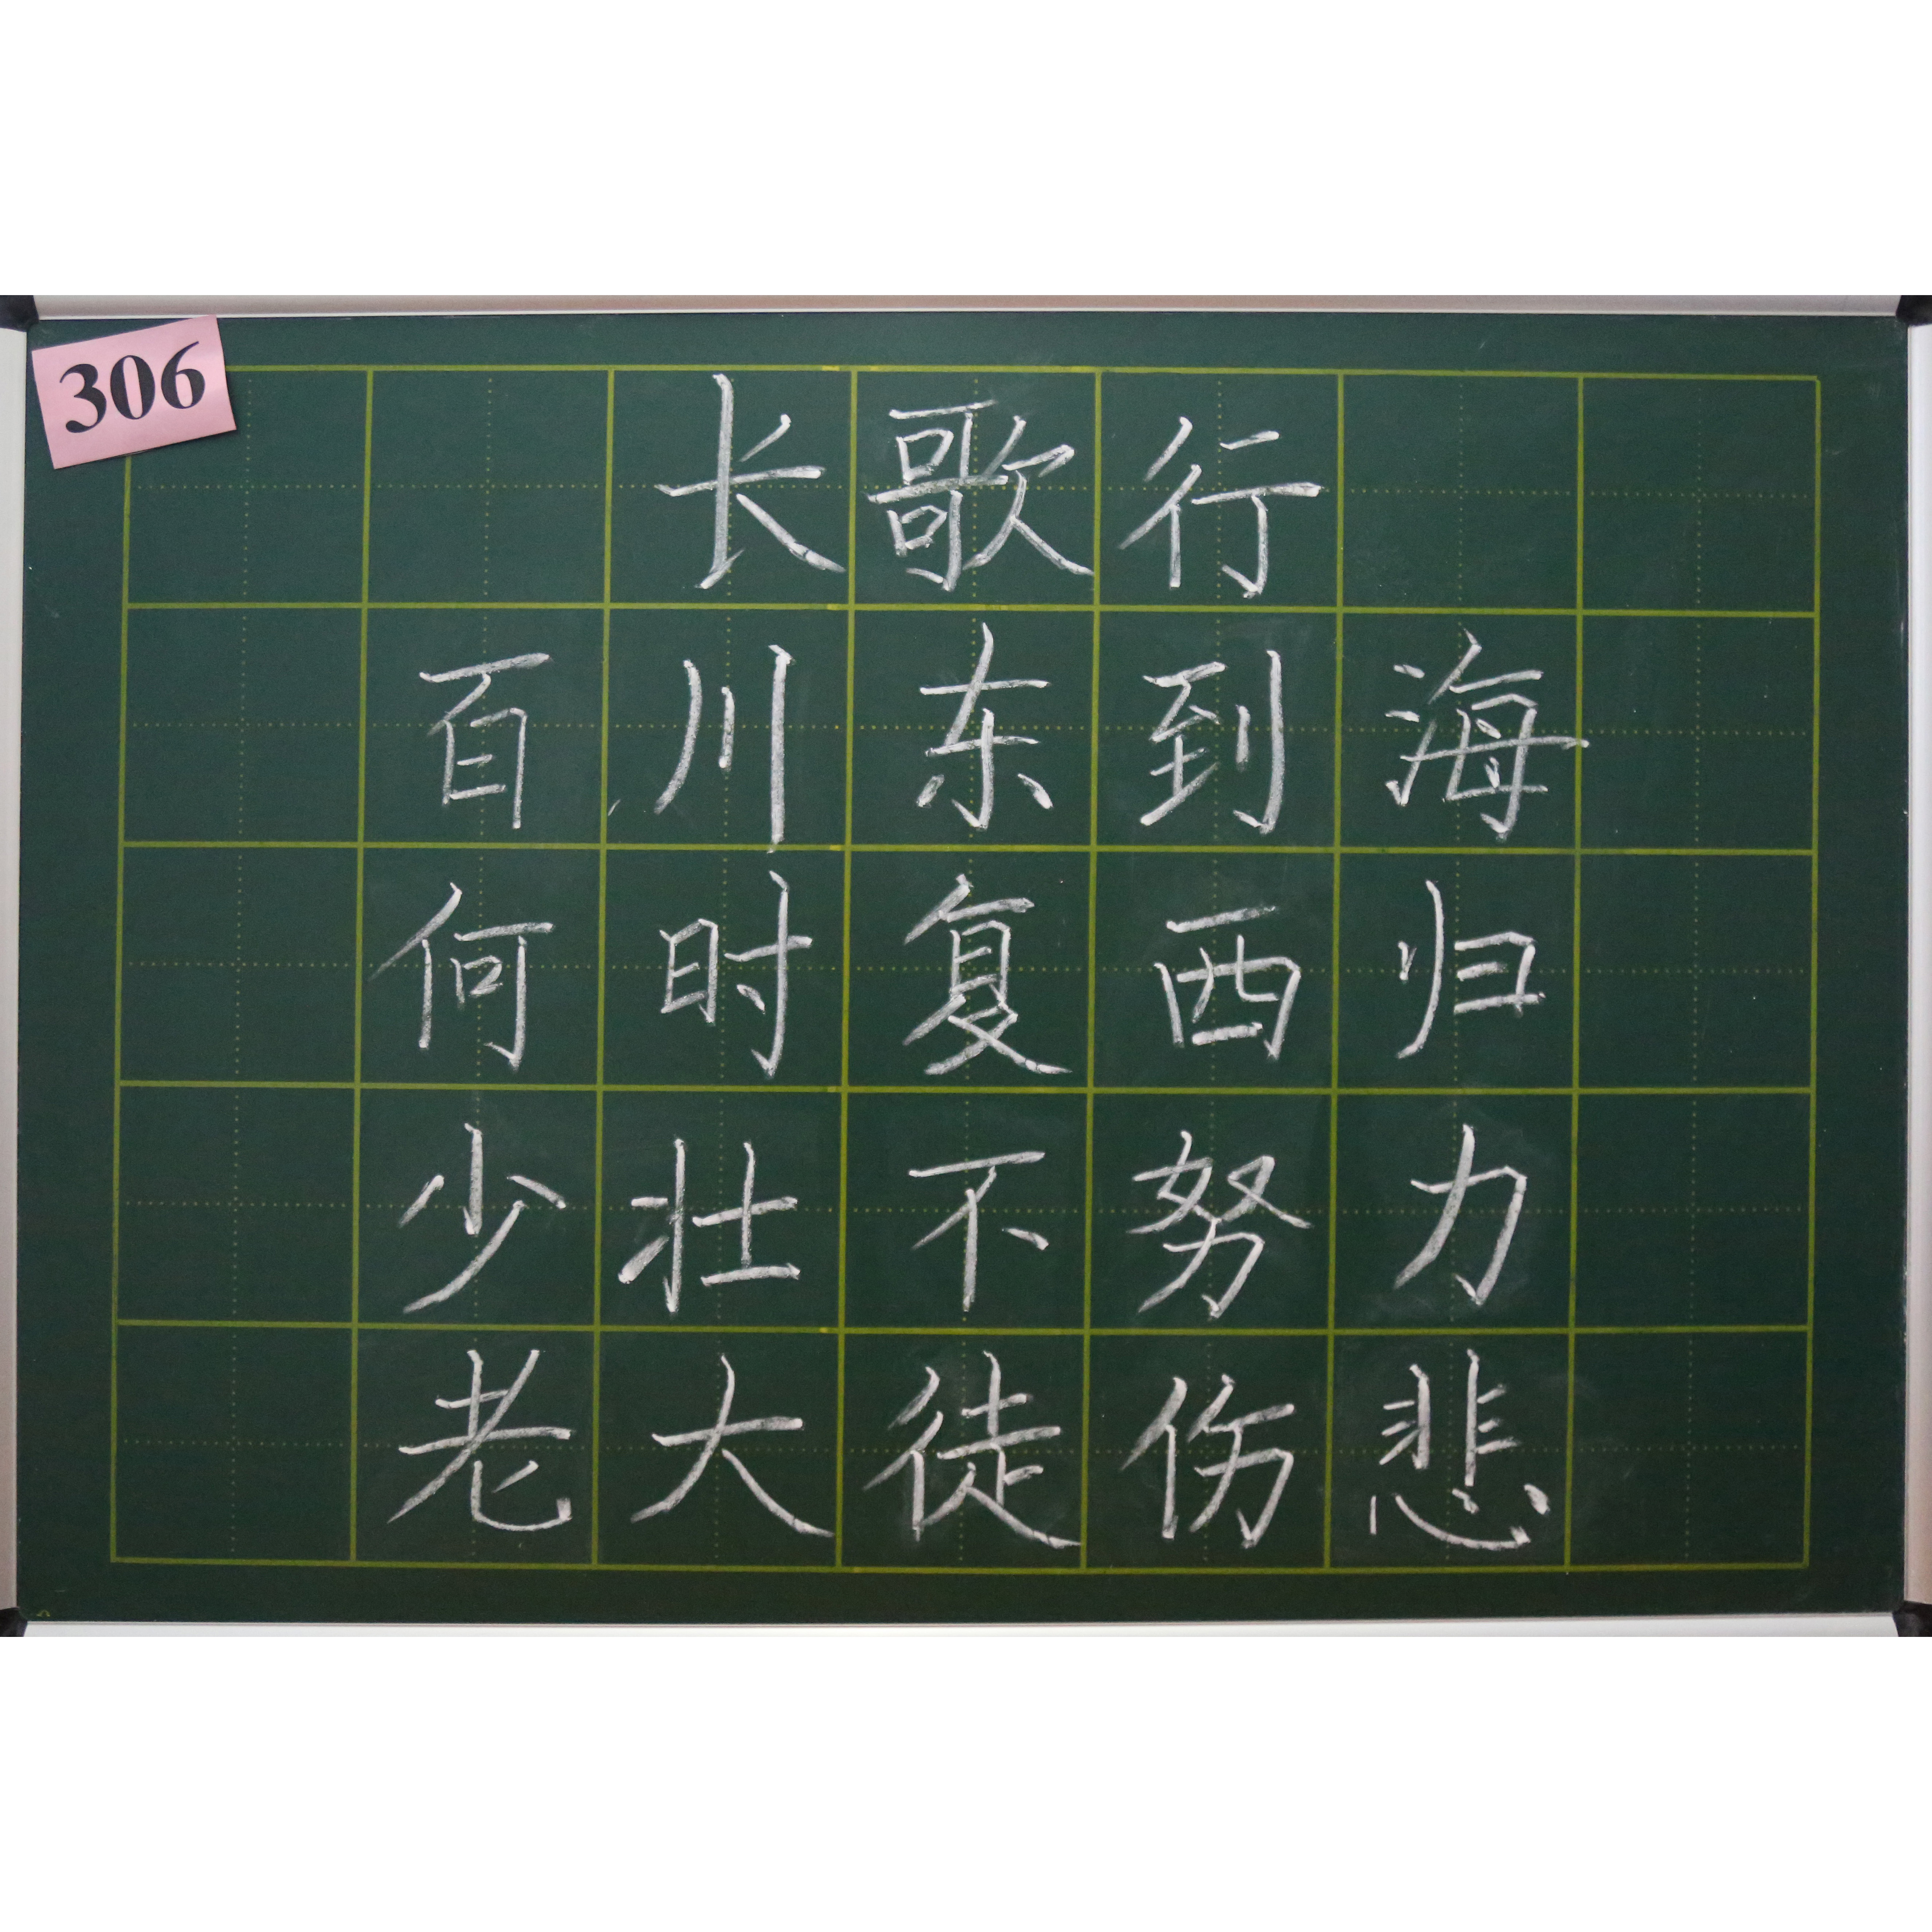 306
长歌行
百川东到海
何时复西归
少壮不努力
老大徒伤悲